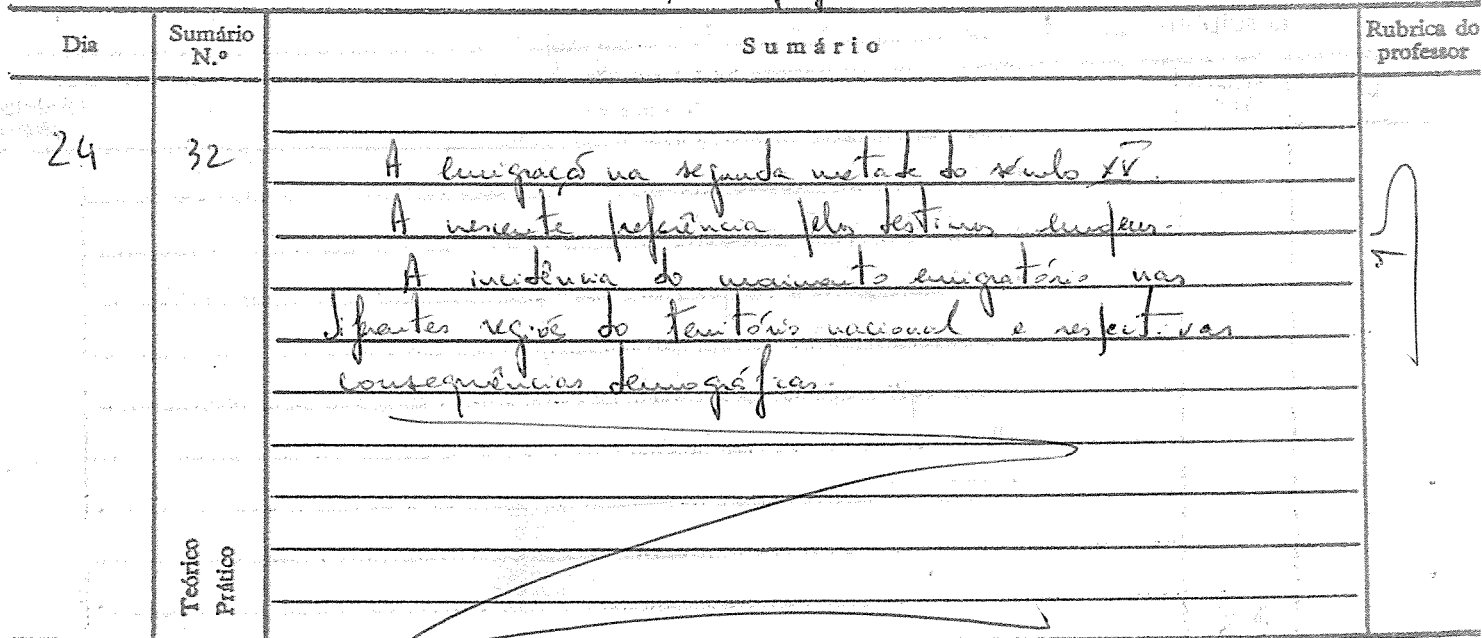 Dia
Sumário N.º
Sumário
Rubrica do professor
24
32
A emigração na segunda metade do século XX.
A crescente preferência pelos destinos europeus.
A incidência do movimento emigratório nas
diferentes regiões do território nacional e respectivas
consequências demográficas.
Teórico
Prático